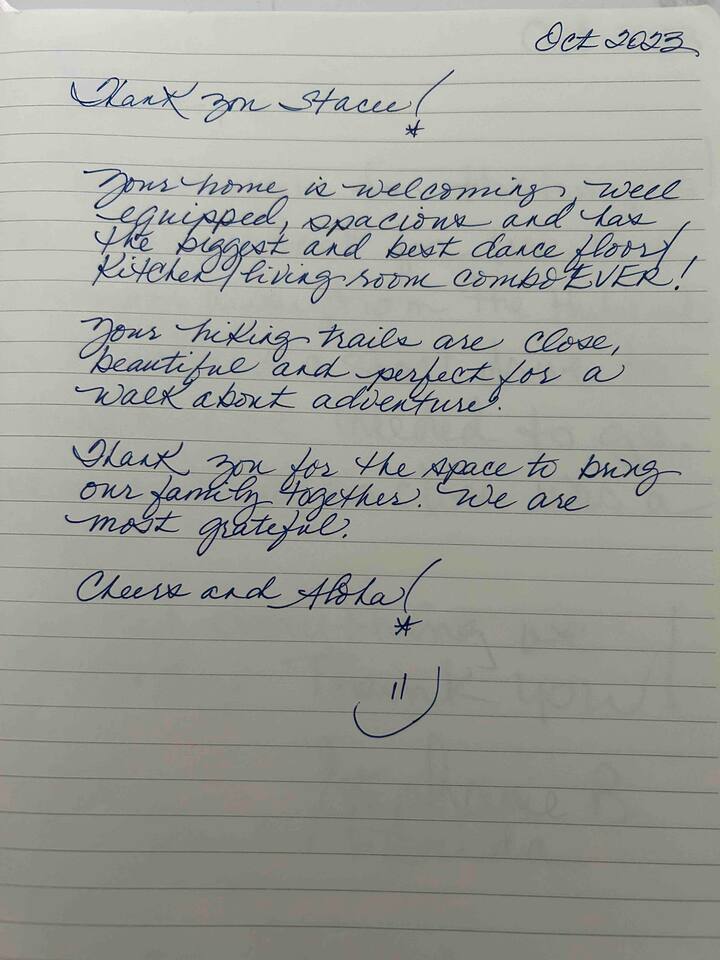 Oct 2023
Thank you Stacee!
Your home is welcoming, well
equipped, spacious and has
the biggest and best dance floor/
Kitchen/living room combo EVER!
Your hiking trails are close,
beautiful and perfect for a
walk about adventure.
Thank you for the space to bring
our family together. We are
most grateful.
Cheers and Aloha!